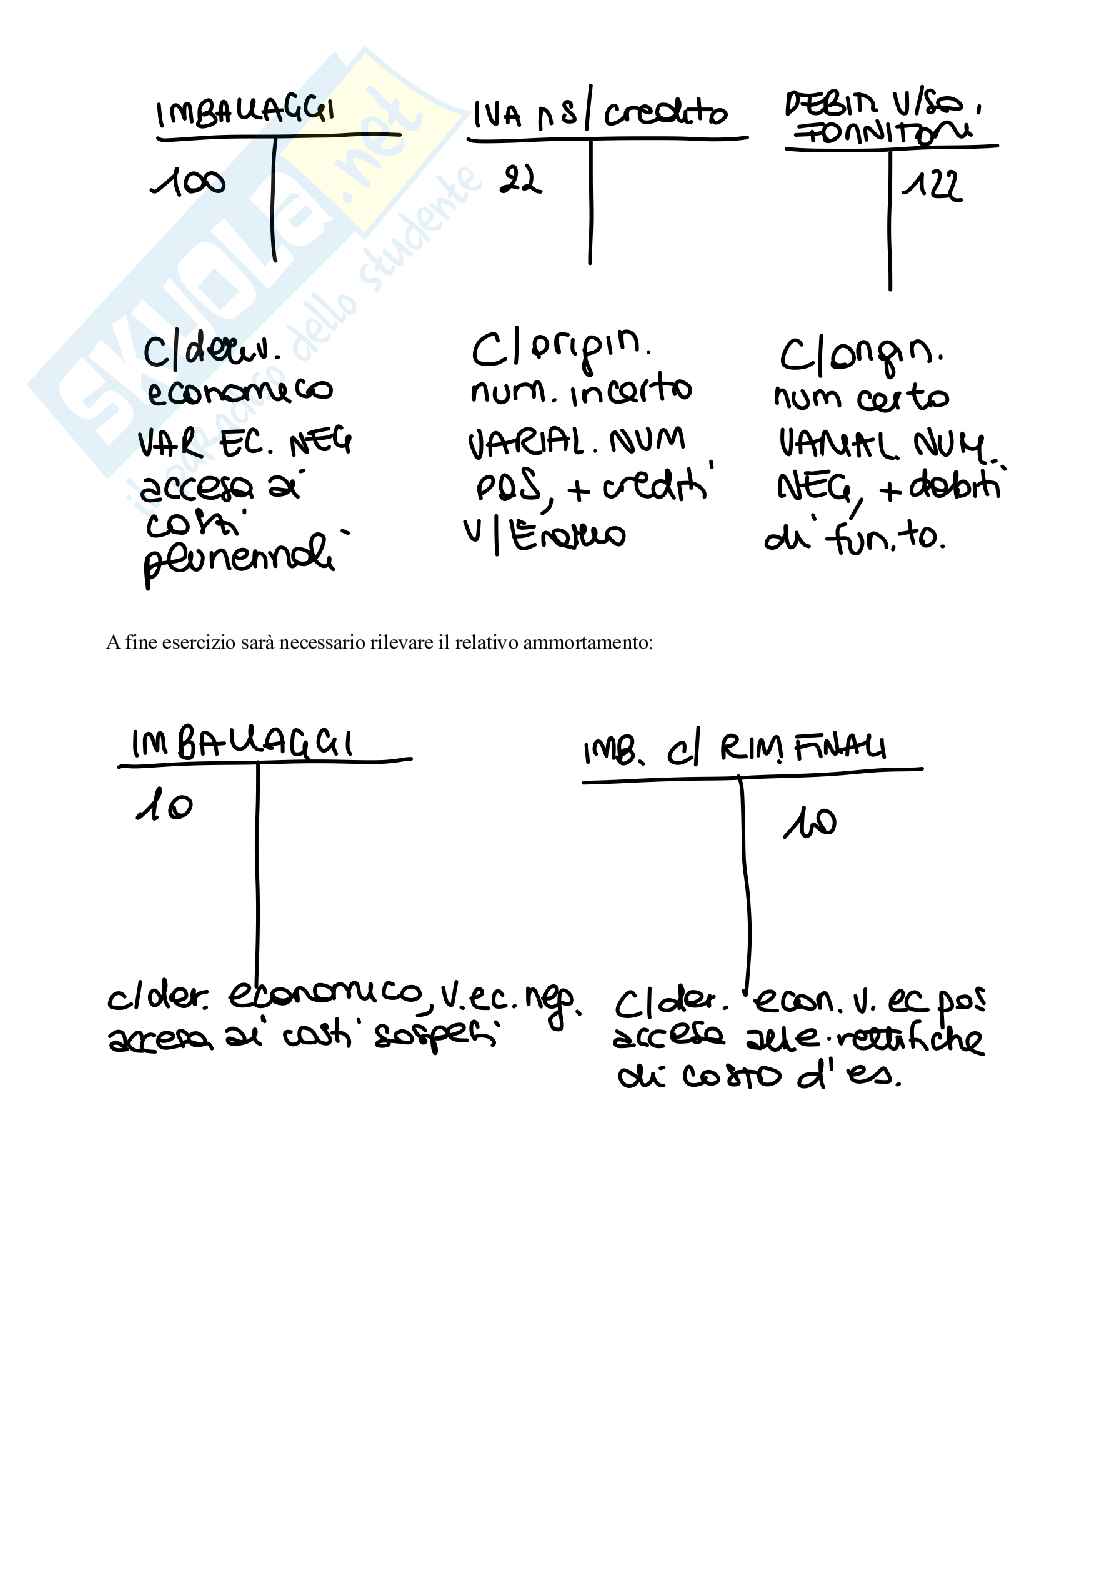 IMBALLAGGI
100
IVA ns/ credito
22
DEBITI V/SO.
FORNITORI
122
C/deriv.
economico
VAR EC. NEG
accesa ai
costi
pluriennali
C/origin.
num. incerto
VARIAZ. NUM
POS, + crediti
V/Erario
C/origin.
num certo
VARIAZ. NUM.
NEG, + debiti
di fun.to.
A fine esercizio sarà necessario rilevare il relativo ammortamento:
IMBALLAGGI
10
IMB. c/ RIM. FINALI
10
c/der. economico, v.ec.neg.
accesa ai costi sospesi
C/der. econ. v. ec pos
accesa alle rettifiche
di costo d'es.
SKUOLA.net
il paradiso dello studente